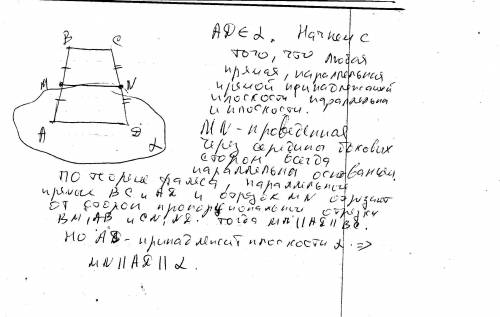 B C
M N
A D
α
AD ∈ α. Начнем с
того, что любая
прямая, параллельная
прямой принадлежащей
плоскости параллельна
и плоскости.
MN - проведенная
через середины боковых
сторон всегда
параллельна основаниям
По теореме фалеса, параллельные
прямые BC и AD и отрезок MN отрезают
от сторон пропорциональные отрезки
тогда MN || AD || BC.
Но AD - принадлежит плоскости α =>
MN || AD || α.